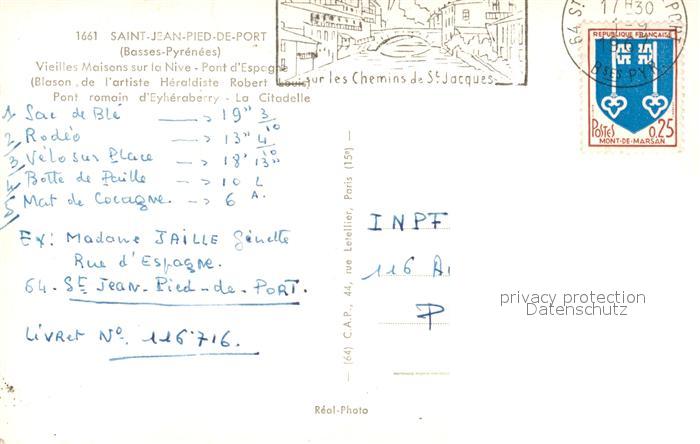 1661 SAINT-JEAN-PIED-DE-PORT
(Basses-Pyrénées)
Vieilles Maisons sur la Nive - Pont d'Espagne
(Blason de l'artiste Héraldiste Robert Louis)
Pont romain d'Eyhéraberry - La Citadelle
sur les Chemins de St Jacques
17H30
REPUBLIQUE FRANÇAISE
POSTES 0,25
MONT-DE-MARSAN
1 Sac de Blé → 19" 3/10
2 Rodéo → 13" 4/10
3 Vélo sur Place → 18' 13"
4 Botte de Paille → 10 L
5 Mat de Cocagne → 6 A.
Ex: Madame JAILLE Ginette
Rue d'Espagne.
64. St Jean-Pied-de-PORT.
Livret No. 116.716.
(64) C.A.P., 44, rue Letellier, Paris (15e)
INPF
116 A
P
privacy protection
Datenschutz
Réal-Photo